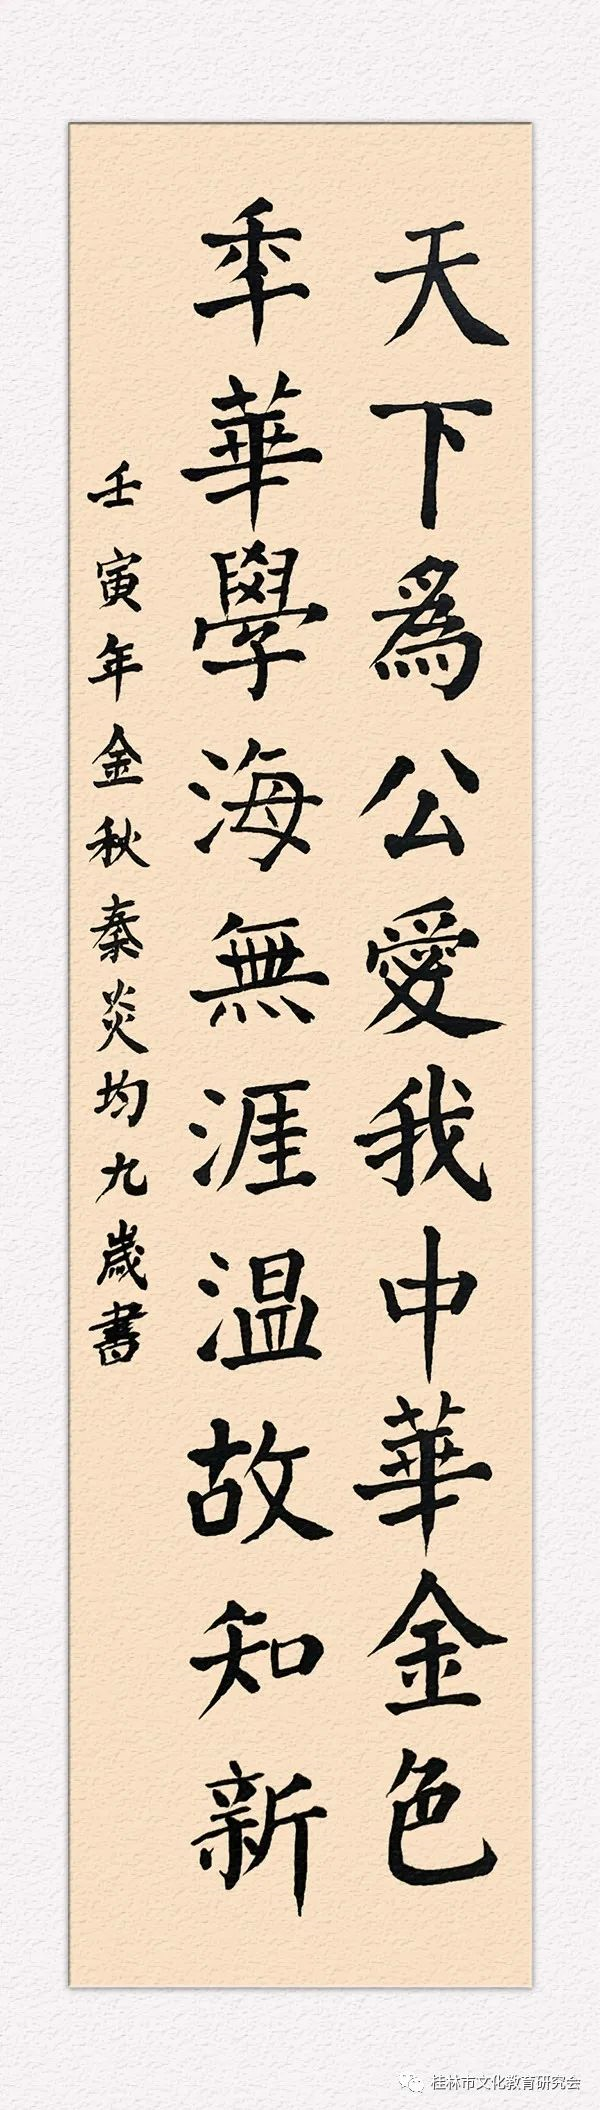 天下為公愛我中華金色
年華學海無涯温故知新
壬寅年金秋秦炎均九歲書
桂林市文化教育研究会